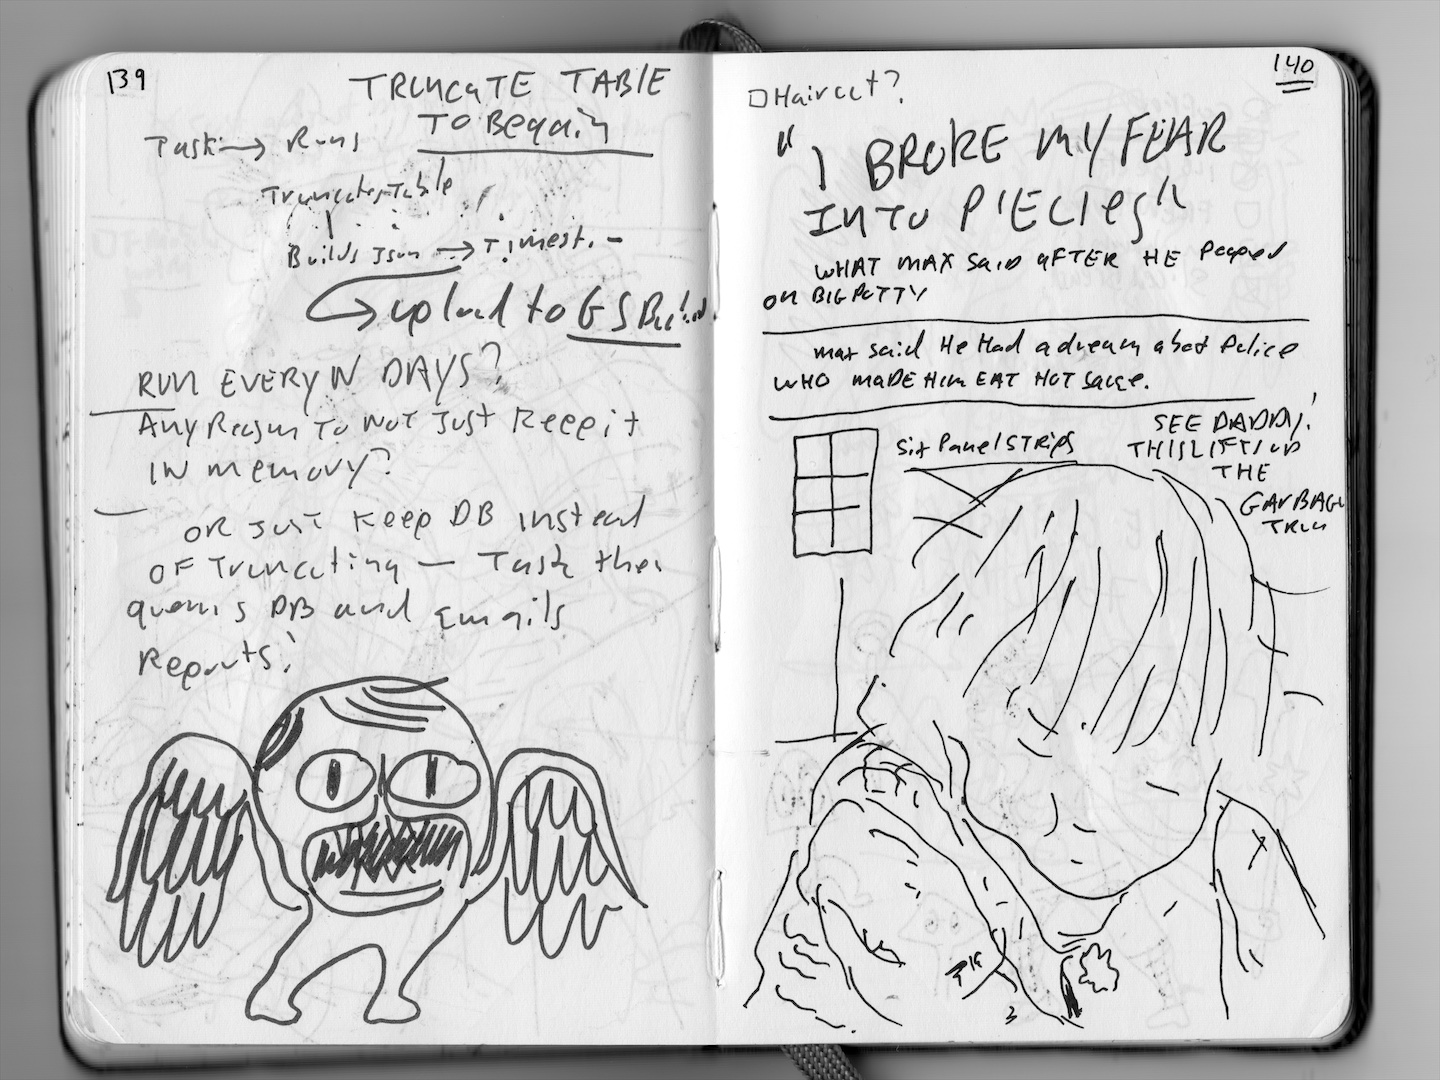 139
TRUNCATE TABLE
TO BEGAIN
Task → Runs
Truncates Table
Builds Json → Timest. –
→ upload to GS Bucket
RUN EVERY N DAYS?
Any Reason TO NOT JUST Keep it
IN memory?
OR JUST KEEP DB instead
OF Truncating — Task then
queries DB and Emails
Reports!
140
Haircut?
"I BROKE MY FEAR
INTO PIECIES"
WHAT MAX SAID AFTER HE Pooped
ON BIG POTTY
max said He Had a dream abot Police
WHO MADE HIM EAT HOT Sauce.
Six Panel STRIPS
SEE DADDY!
THIS LIFTS UP
THE
GARBAGE